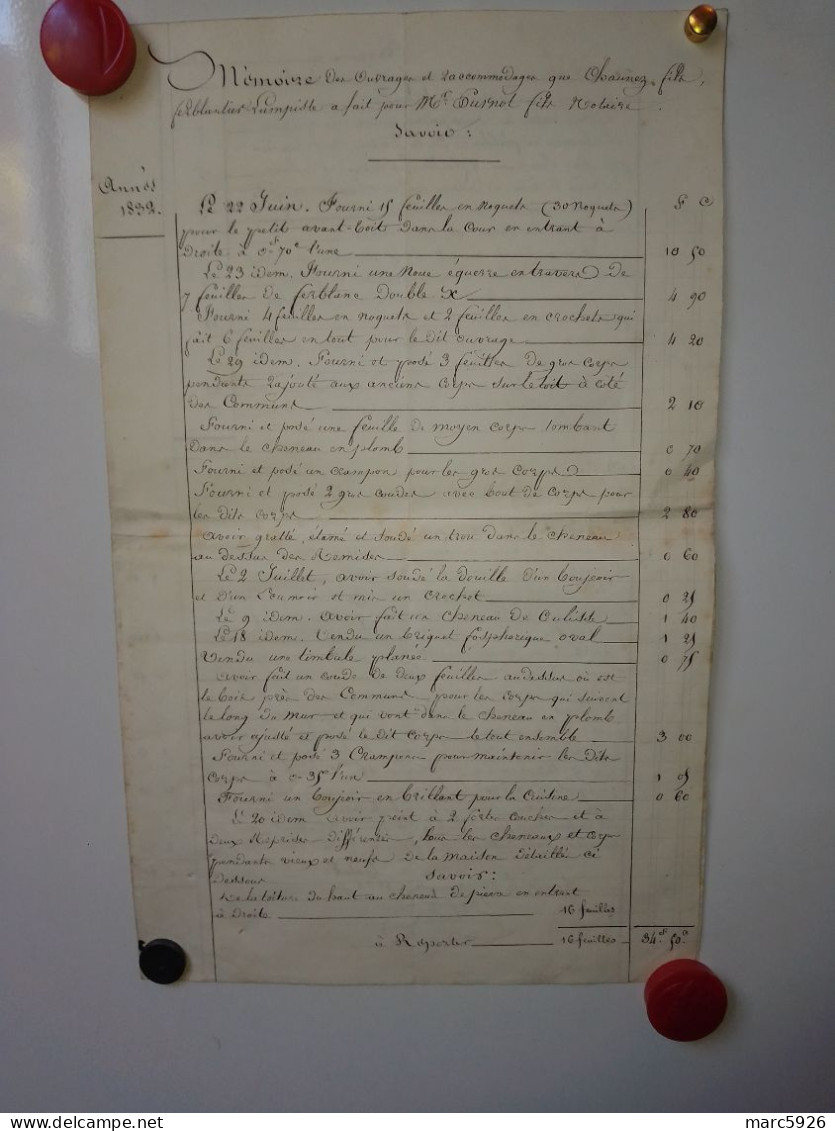 Mémoire Des Ouvrages et Racommodages que fils,
ferblantier Lampiste a fait pour Mr. fils Notaire.
Savoir:
Année
1832.
F C
Le 22 Juin. Fourni 15 feuilles en Noquets (30 Noquets)
pour le petit avant-toit Dans la Cour en entrant à
Droite à 0f 70c l'une 10 50
Le 23 idem. Fourni une Noue équerre en travers De
7 feuilles De ferblanc Double X 4 90
Fourni 4 feuilles en noquets et 2 feuilles en crochets qui
fait 6 feuilles en tout pour le Dit ouvrage 4 20
Le 29 idem. Fourni et posé 3 feuilles De gros Corps
pendants rajusté aux anciens Corps sur le toit à coté
Des Communs 2 10
Fourni et posé une feuille De moyen Corps tombant
Dans le cheneau en plomb 0 70
Fourni et posé un crampon pour les gros Corps 0 40
Fourni et posé 2 gros coudes avec bout De Corps pour
les Dits Corps 2 80
avoir gratté, étamé et soudé un trou Dans le cheneau
au Dessus Des Remises 0 60
Le 2 Juillet, avoir soudé la Douille D'un boujoir
et D'un et mis un crochet 0 25
Le 9 idem. avoir fait un cheneau De 1 40
Le 18 idem. Vendu un briquet fosphorique oval 1 25
Vendu une timbale planée 0 75
avoir fait un coude De Deux feuilles audessus où est
le bois près Des Communs pour les Corps qui suivent
le long Du mur et qui vont Dans le cheneau en plomb
avoir ajusté et posé le Dit Corps le tout ensemble 3 00
Fourni et posé 3 Crampons pour maintenir les Dits
Corps à 0 35c l'un 1 05
Fourni un boujoir en brillant pour la Cuisine 0 60
Le 20 idem avoir peint à 2 fortes couches et à
Deux Reprises Différentes, tous les cheneaux et Corps
pendants vieux et neufs De la maison Détaillés ci
Dessous Savoir:
De la toiture Du haut au cheneau De pierre en entrant
à Droite 16 feuilles
à Reporter 16 feuilles 34f 50c
marc5926